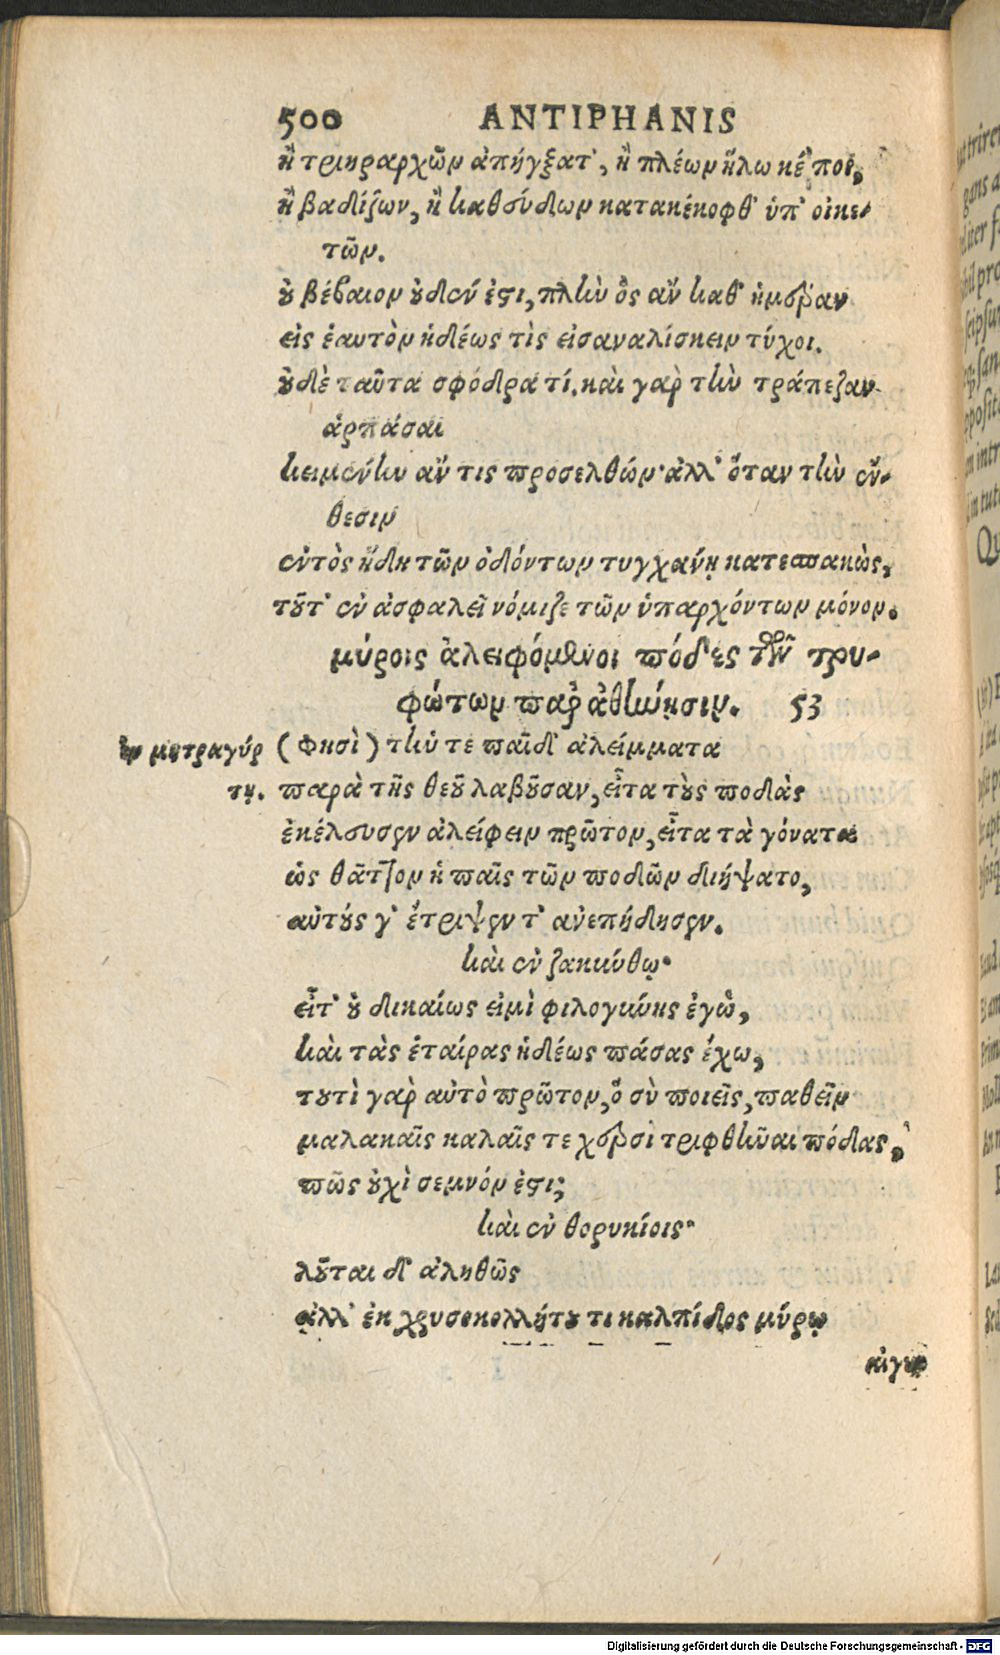 500 ANTIPHANIS
ἢ τριηραρχῶν ἀπήγξατ', ἢ πλέων ἥλωκέ ποι,
ἢ βαδίζων, ἢ καθεύδων κατακέκοφθ' ὑπ' οἰκε-
τῶν.
οὐ βέβαιον οὐδέν ἐστι, πλὴν ὃς ἂν καθ' ἡμέραν
εἰς ἑαυτὸν ἡδέως τὶς εἰσαναλίσκειν τύχοι.
οὐδὲ ταῦτα σφόδρα τί. καὶ γὰρ τὴν τράπεζαν
ἁρπάσαι
κειμένην ἄν τις προσελθών· ἀλλ' ὅταν τὴν ἔν-
θεσιν
ἐντὸς ἤδη τῶν ὀδόντων τυγχάνῃ κατεσπακὼς,
τοῦτ' ἐν ἀσφαλεῖ νόμιζε τῶν ὑπαρχόντων μόνον.
μύροις ἀλειφόμενοι πόδες τῶν τρυ-
φώντων παρ' ἀθηναίησιν. 53
ἐν μετραγύρ (Φησὶ) τήν τε παῖδ' ἀλείμματα
τῃ. παρὰ τῆς θεοῦ λαβοῦσαν, εἶτα τοὺς ποδὰς
ἐκέλευσεν ἀλείφειν πρῶτον, εἶτα τὰ γόνατα
ὡς θᾶττον ἡ παῖς τῶν ποδῶν διήψατο,
αὐτούς γ' ἔτριψεν τ' ἀνεπήδησεν.
καὶ ἐν ζακύνθῳ·
εἶτ' οὐ δικαίως εἰμὶ φιλογύνης ἐγὼ,
καὶ τὰς ἑταίρας ἡδέως πάσας ἔχω,
τουτὶ γὰρ αὐτὸ πρῶτον, ὃ σὺ ποιεῖς, παθεῖν
μαλακαῖς καλαῖς τε χερσὶ τριφθῆναι πόδας,
πῶς οὐχὶ σεμνόν ἐστι;
καὶ ἐν θορυκίοις·
λοῦται δ' ἀληθῶς
ἀλλ' ἐκ χρυσοκολλήτου τι καλπίδος μύρῳ
αἰγυπ
Digitalisierung gefördert durch die Deutsche Forschungsgemeinschaft - DFG